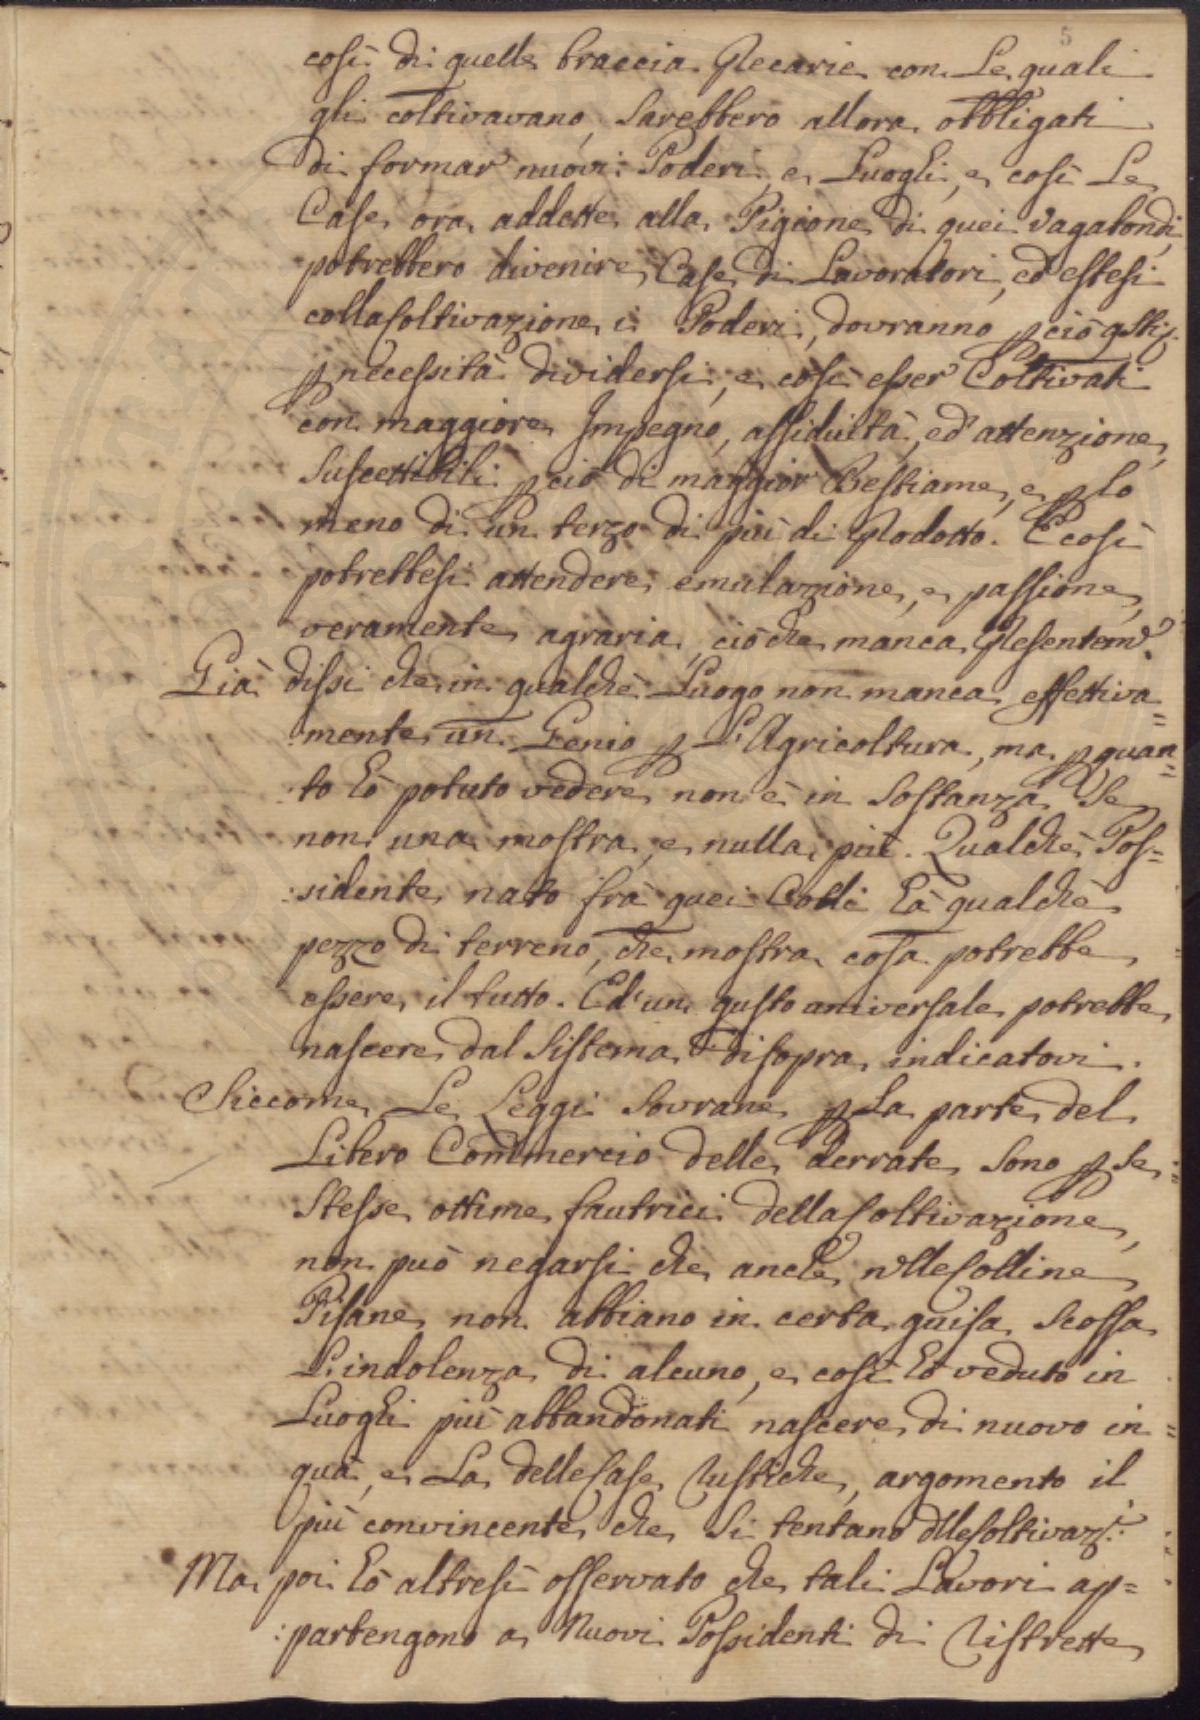 5
così di quelle braccia Precarie con Le quali
gli coltivavano, Sarebbero allora obbligati
di formar nuovi Poderi, e Luoghi, e così Le
Case ora addette alla Pigione di quei Vagabondi,
potrebbero divenire Case di Lavoratori, ed estesi
colla Coltivazione i Poderi, dovranno p ciò
p necessità dividersi, e così esser Coltivati
con maggiore Impegno, assiduità, ed attenzione,
Suscettibili p ciò di maggior Bestiame, e p lo
meno di un terzo di più di Prodotto. E così
potrebbesi attendere emulazione, e passione
veramente agraria, ciò che manca Presentem.e
Già dissi che in qualche Luogo non manca effettiva=
mente un Genio p L'Agricoltura, ma p quan=
:to hò potuto vedere non è in Sostanza Se
non una mostra, e nulla più. Qualche Pos=
:sidente nato frà quei Colli hà qualche
pezzo di terreno, che mostra cosa potrebbe
essere il tutto. Ed un gusto universale potrebbe
nascere dal Sistema disopra indicatovi.
Siccome Le Leggi Sovrane p La parte del
Libero Commercio delle derrate Sono p Se
Stesse ottime fautrici della Coltivazione,
non può negarsi che anche nelle Colline
Pisane non abbiano in certa guisa Scossa
L'indolenza di alcuno, e così hò veduto in
Luoghi più abbandonati nascere di nuovo in
quà, e La delle Case Rustiche, argomento il
più convincente che Si tentano dlle Coltivaz.i:
Ma poi hò altresì osservato che tali Lavori ap=
:partengono a Nuovi Possidenti di Ristrette